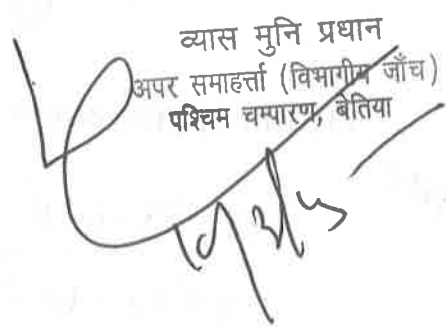 व्यास मुनि प्रधान
अपर समाहर्त्ता (विभागीय जाँच)
पश्चिम चम्पारण, बेतिया